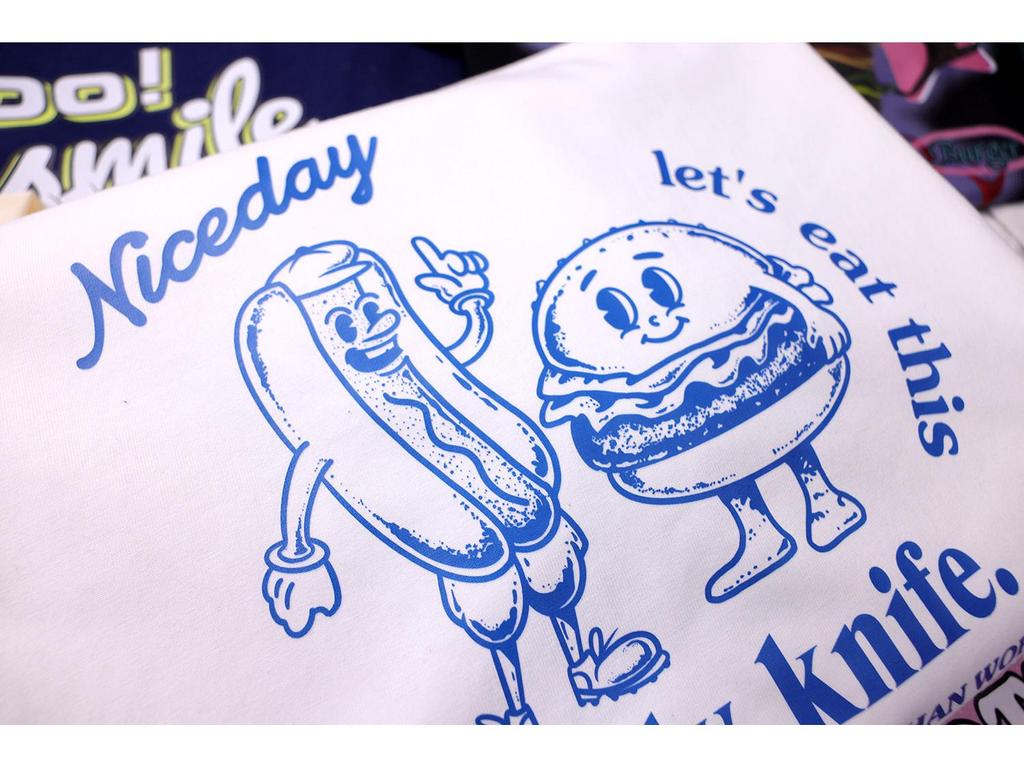 oo!
smile
Niceday
let's eat this
knife.